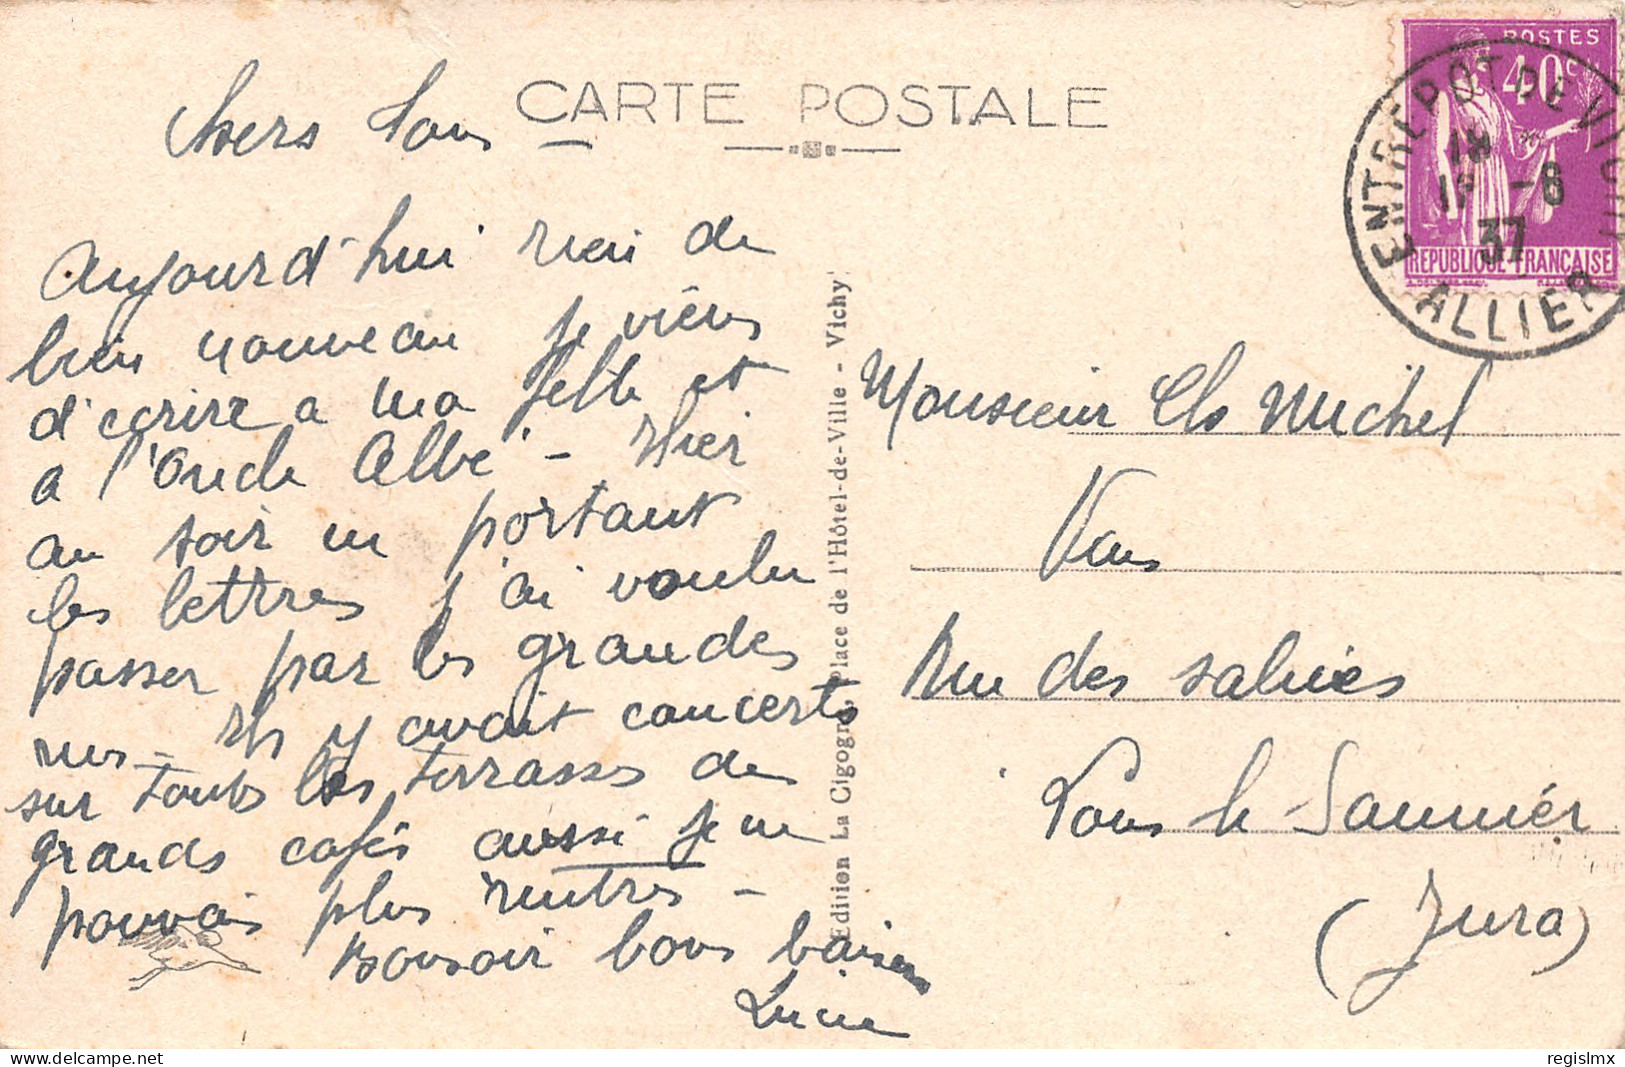 CARTE POSTALE
Chers Tous
Aujourd'hui rien de
bien nouveau je viens
d'ecrire a ma fille et
a l'Oncle Albe - Hier
au soir en portant
les lettres j'ai voulu
passer par les grandes
rues - Ils y avait concerts
sur toutes les terrasses de
grands cafés aussi je ne
pouvais plus rentrer -
Bonsoir bons baisers
Lucie
Edition La Cigogne, Place de l'Hôtel-de-Ville - Vichy
POSTES
40c
REPUBLIQUE FRANÇAISE
ENTREPOT DE VICHY
18
-8
37
ALLIER
Monsieur Chs Michel
Rue des salines
Lons le Saunier
(Jura)
regislmx
delcampe.net